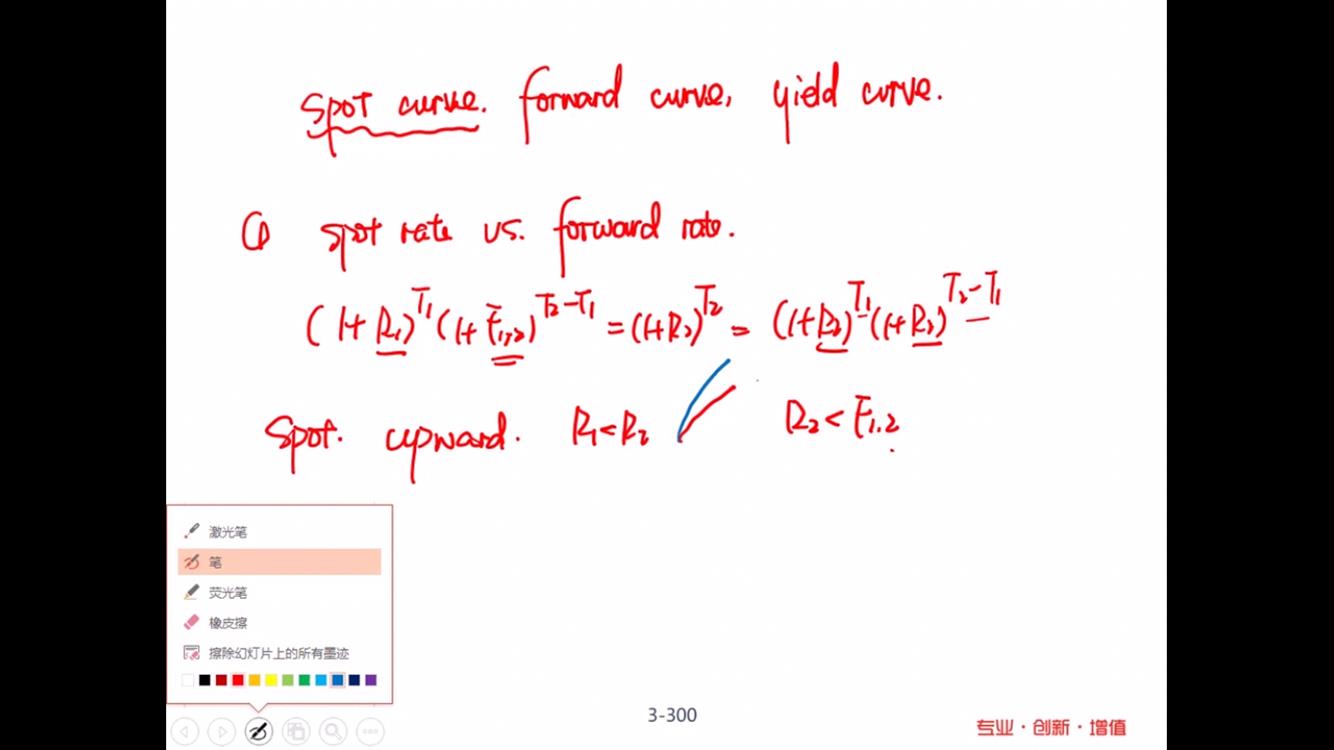 spot curve. forward curve, yield curve.
① spot rate vs. forward rate.
(1+R₁)^T₁ (1+F₁,₂)^T₂-T₁ = (1+R₂)^T₂ = (1+R₂)^T₁ (1+R₂)^T₂-T₁
Spot. upward. R₁<R₂ R₂<F₁.₂
激光笔
笔
荧光笔
橡皮擦
擦除幻灯片上的所有墨迹
3-300
专业·创新·增值